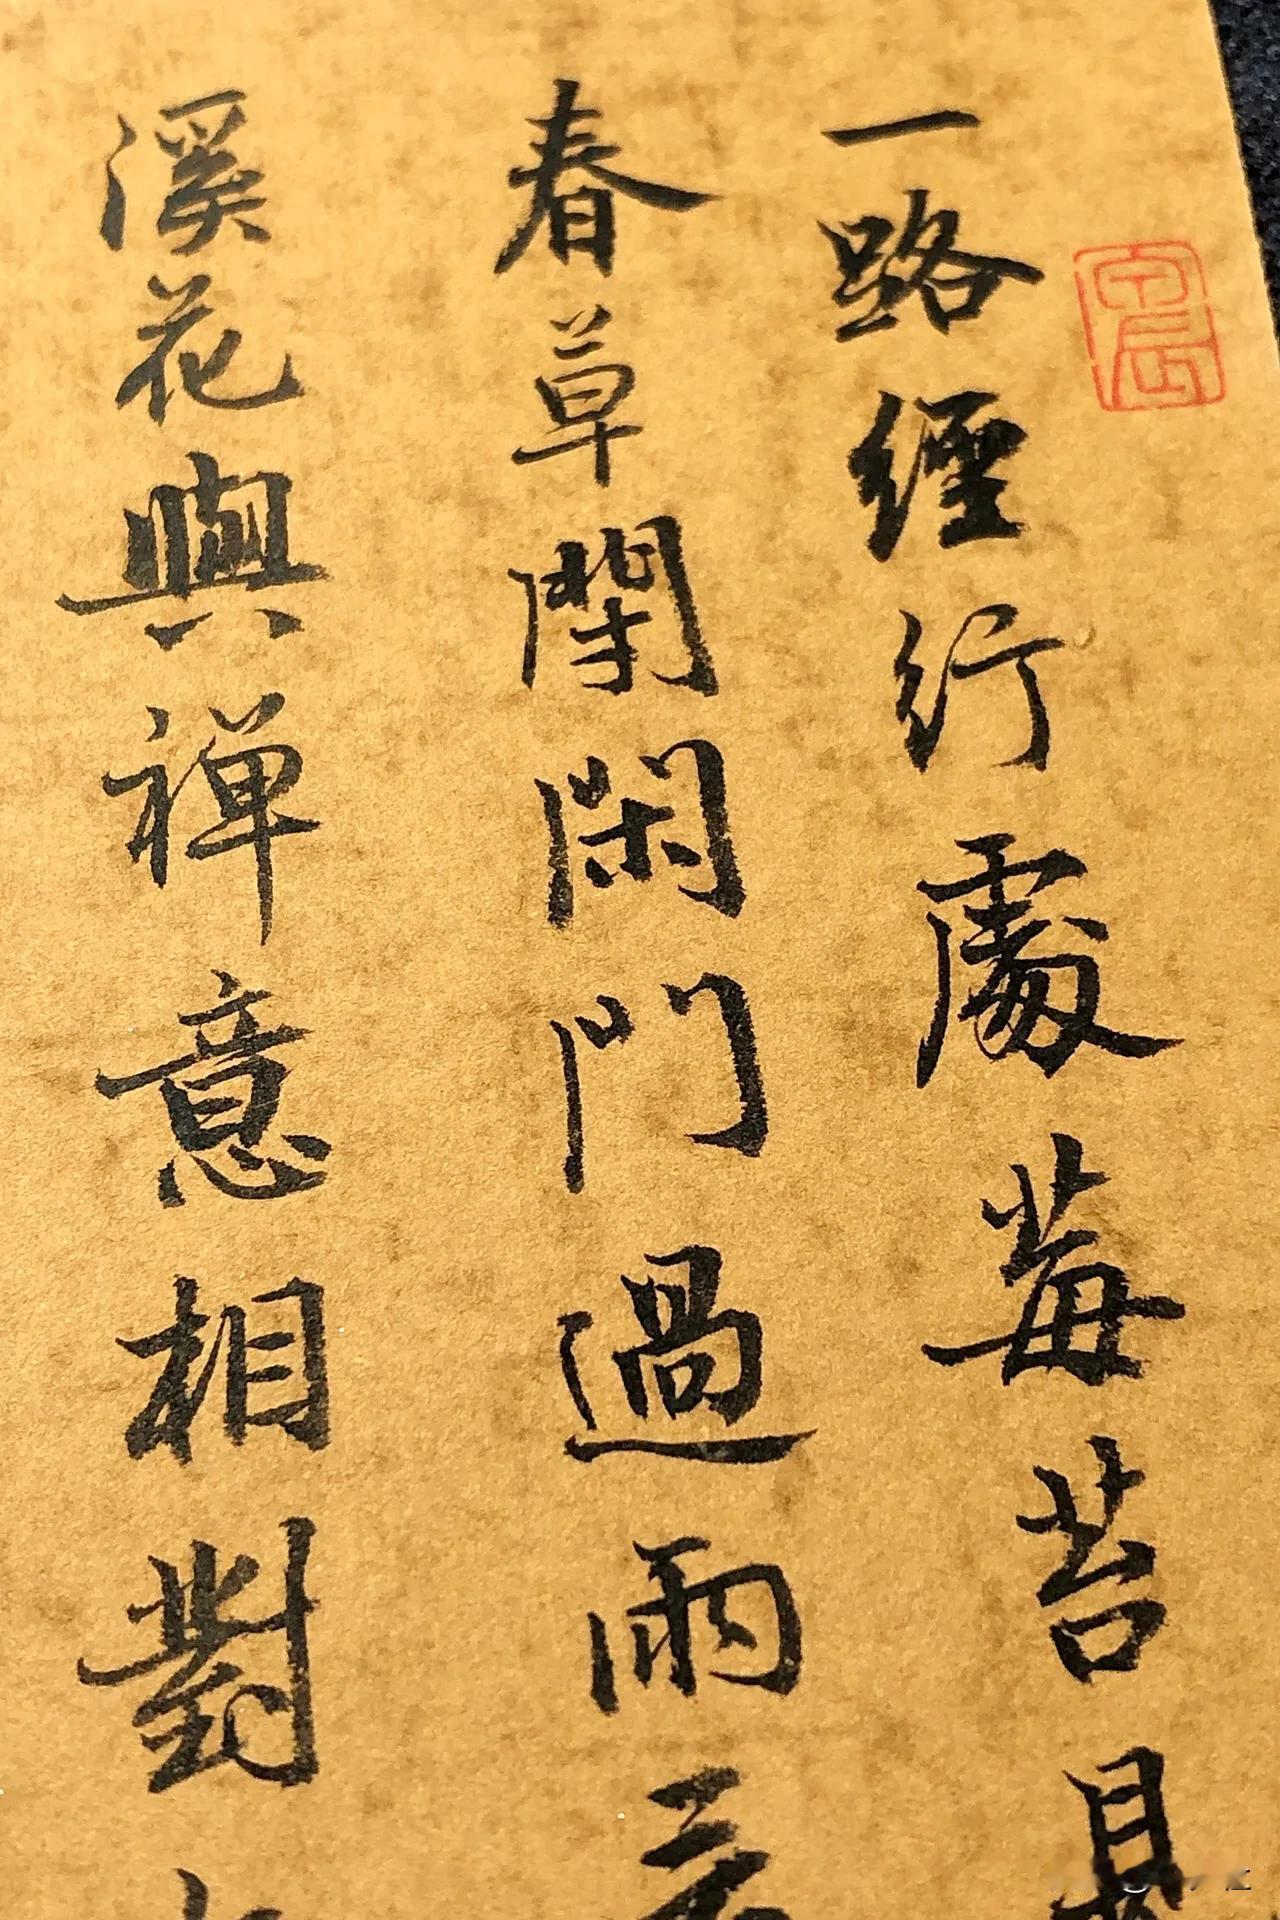 一路經行處莓苔見
春草閉閑門過雨
溪花與禪意相對